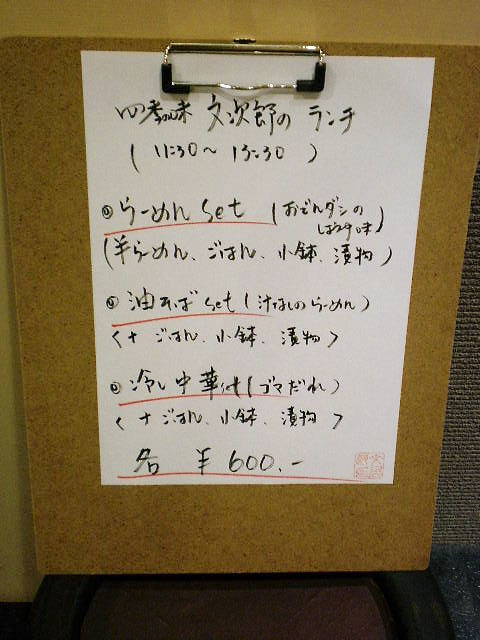 四季の味 文次郎の ランチ
( 11:30～13:30 )
◎らーめん set (おでんダシの
しょうゆ味)
(半らーめん、ごはん、小鉢、漬物)
◎油そば set (汁なしのらーめん)
<+ ごはん、小鉢、漬物>
◎冷し中華set(ゴマだれ)
<+ ごはん、小鉢、漬物>
各 ¥600.-